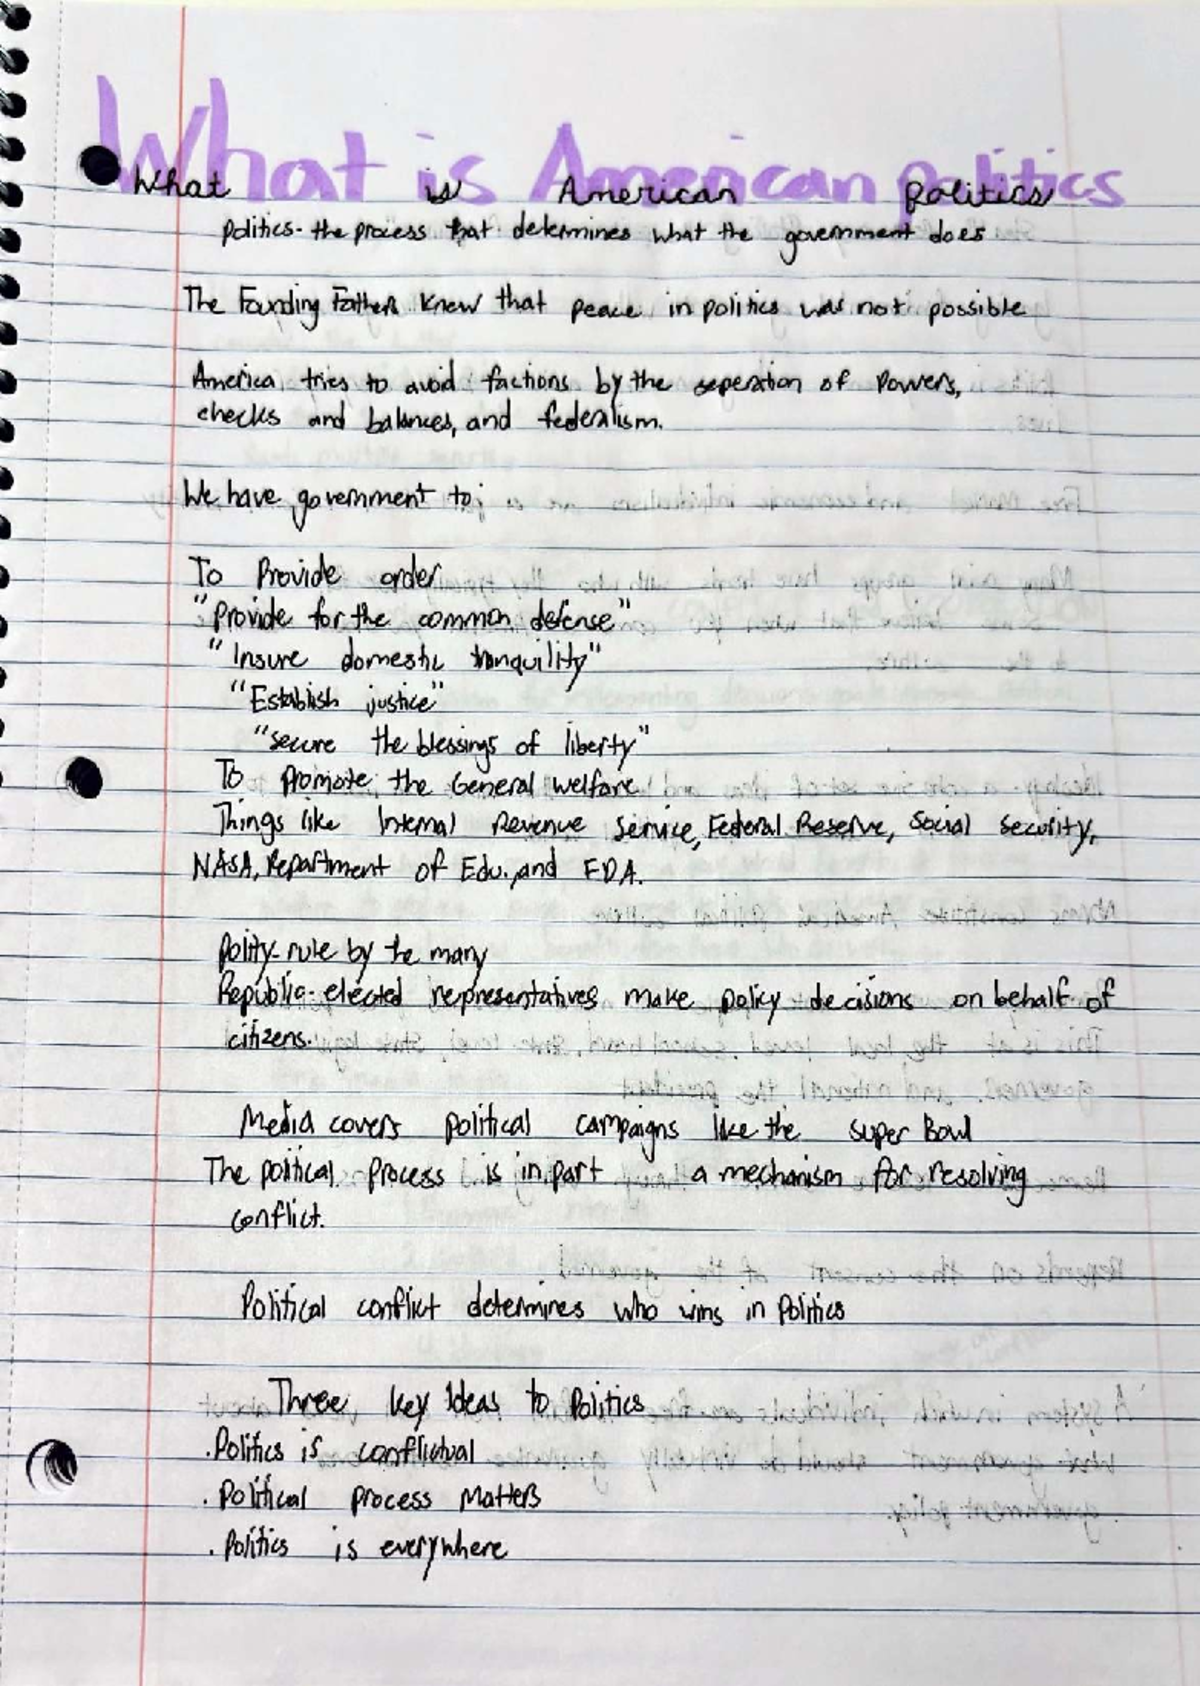 What is American politics
What is American politics
Politics- the process that determines what the government does
The Founding Fathers knew that peace in politics was not possible
America tries to avoid factions by the seperation of Powers,
checks and balances, and federalism.
We have government to:
To Provide order
"Provide for the common defense"
"Insure domestic tranquility"
"Establish justice"
"Secure the blessings of liberty"
To Promote the General welfare
Things like Internal Revenue Service, Federal Reserve, Social Security,
NASA, Department of Edu., and FDA.
Polity- rule by the many
Republic- elected representatives make policy decisions on behalf of
citizens.
Media covers political campaigns like the super Bowl
The political process is in part a mechanism for resolving
conflict.
Political conflict determines who wins in Politics
Three key Ideas to Politics
.Politics is conflictual
. Political process Matters
. Politics is everywhere